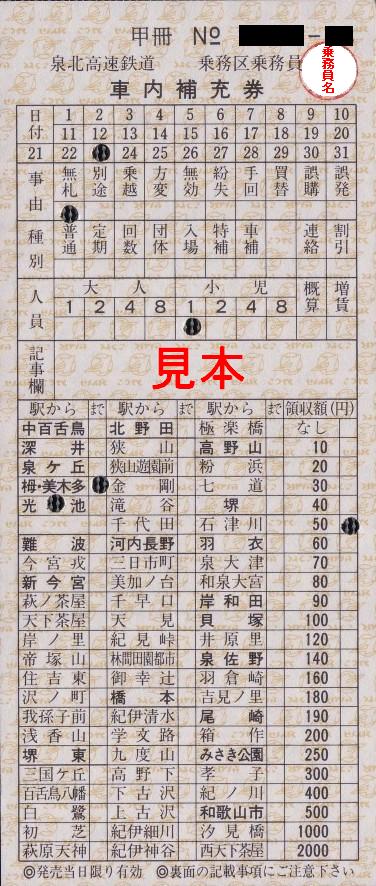 甲冊 № -
泉北高速鉄道 乗務区乗務員
乗務員名
車内補充券
日付 1 2 3 4 5 6 7 8 9 10
11 12 13 14 15 16 17 18 19 20
21 22 24 25 26 27 28 29 30 31
事由 無札 別途 乗越 方変 無効 紛失 手回 買替 誤購 誤発
種別 普通 定期 回数 団体 入場 特補 車補 連絡 割引
人員 大人 小児 概算 増賃
1 2 4 8 1 2 4 8
記事欄
見本
駅から まで 駅から まで 駅から まで 領収額(円)
中百舌鳥 北野田 極楽橋 なし
深井 狭山 高野山 10
泉ケ丘 狭山遊園前 粉浜 20
栂・美木多 金剛 七道 30
光 池 滝谷 堺 40
千代田 石津川 50
難波 河内長野 羽衣 60
今宮戎 三日市町 泉大津 70
新今宮 美加ノ台 和泉大宮 80
萩ノ茶屋 千早口 岸和田 90
天下茶屋 天見 貝塚 100
岸ノ里 紀見峠 井原里 120
帝塚山 林間田園都市 泉佐野 140
住吉東 御幸辻 羽倉崎 160
沢ノ町 橋本 吉見ノ里 180
我孫子前 紀伊清水 尾崎 190
浅香山 学文路 箱作 200
堺東 九度山 みさき公園 250
三国ケ丘 高野下 孝子 300
百舌鳥八幡 下古沢 紀ノ川 400
白鷺 上古沢 和歌山市 500
初芝 紀伊細川 汐見橋 1000
萩原天神 紀伊神谷 西天下茶屋 2000
◎発売当日限り有効 ◎裏面の記載事項にご注意下さい